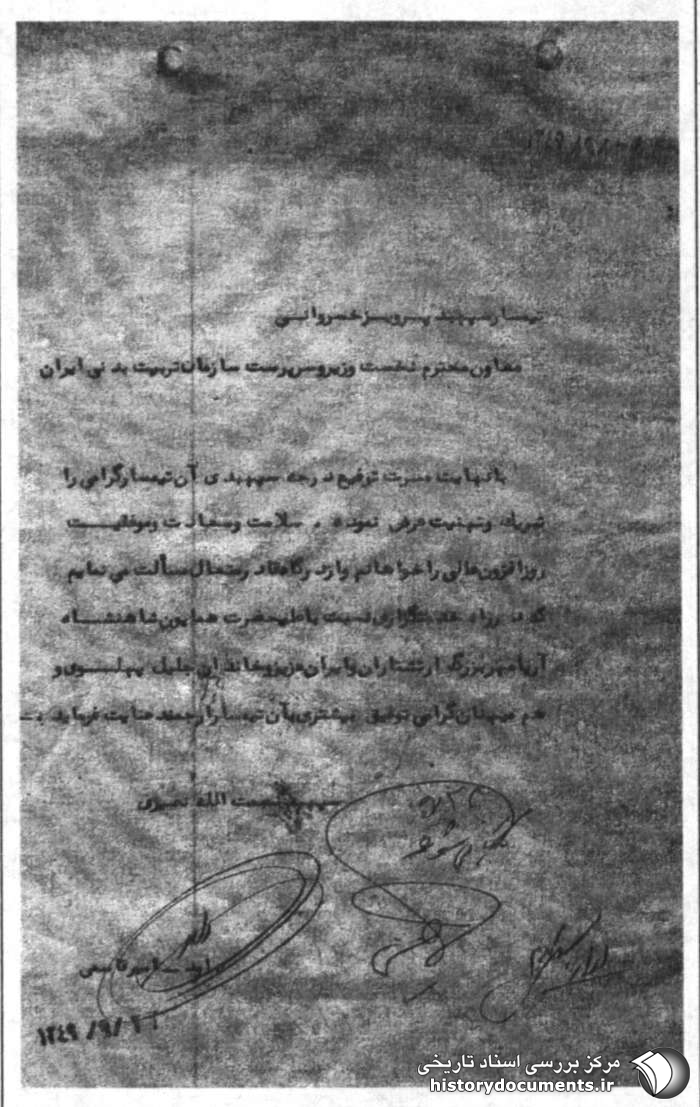 تیمسار سپهبد پرویز خسروانی
معاون محترم نخست وزیر و سرپرست سازمان تربیت بدنی ایران
با نهایت مسرت ترفیع درجه سپهبدی آن تیمسار گرامی را
تبریک و تهنیت عرض نموده ، سلامت و سعادت و موفقیت
روزافزون عالی را خواهانم و از درگاه قادر متعال مسألت می نمایم
که در راه خدمتگزاری نسبت باعلیحضرت همایون شاهنشاه
آریامهر بزرگ ارتشتاران و ایران عزیز و خاندان جلیل پهلوی و
هم میهنان گرامی توفیق بیشتری بآن تیمسار ارجمند عنایت فرماید
سپهبد نعمت الله نصیری
۱۳۴۹/۹/
مرکز بررسی اسناد تاریخی
historydocuments.ir